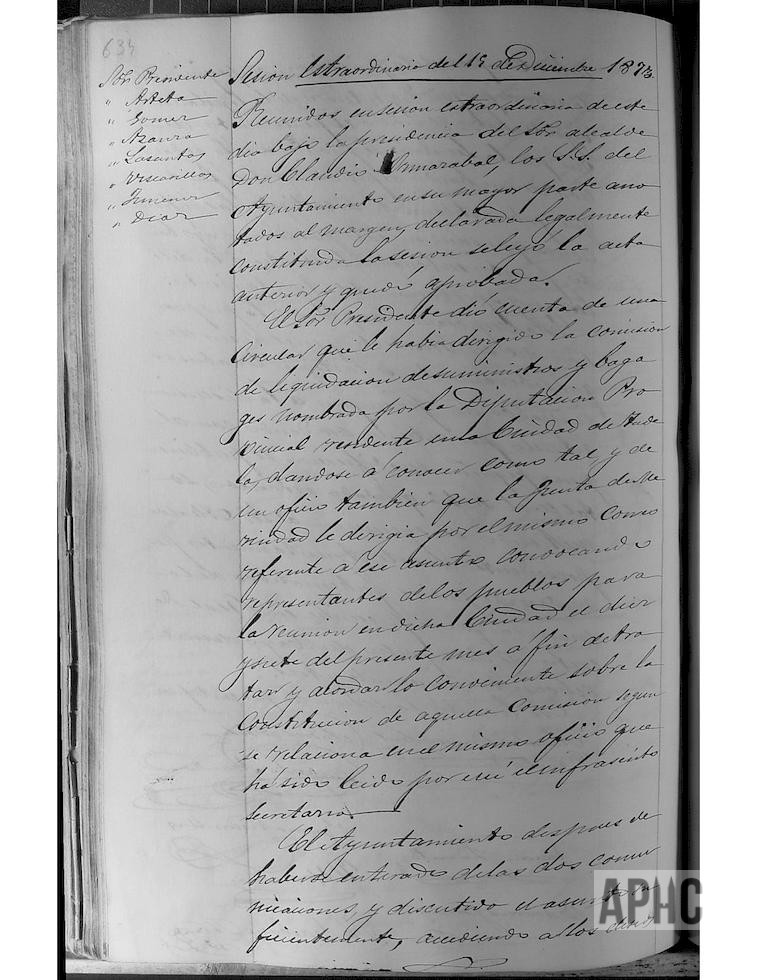 634
Sor. Presidente
" Arteta
" Gomez
" Azanza
" Lasantas
" Viscasillas
" Jimenez
" Diaz
Sesion extraordinaria del 15 de Diciembre 1873.
Reunidos en sesion extraordinaria de este
dia bajo la presidencia del Sor. alcalde
Don Claudio Armarabal, los S.S. del
Ayuntamiento en su mayor parte ano
tados al margen, declarada legalmente
constituida la sesion se leyó la acta
anterior y quedó aprobada.
El Sor. Presidente dió cuenta de una
Circular que le habia dirigido la comision
de liquidacion de suministros y baga
ges nombrada por la Diputacion Pro
vincial residente en la Ciudad de Tude
la, dandose á conocer como tal, y de
un oficio tambien que la Junta de Me
rindad le dirigia por el mismo Correo
referente á ese asunto convocando
representantes de los pueblos para
la reunion en dicha Ciudad el diez
y siete del presente mes á fin de tra
tar y acordar lo conveniente sobre la
Constitucion de aquella Comision segun
se relaciona en el mismo oficio que
há sido leido por mí el infrascrito
Secretario.
El Ayuntamiento despues de
haberse enterado de las dos comu
nicaciones, y discutido el asunto su
ficientemente, accediendo a los
APHC